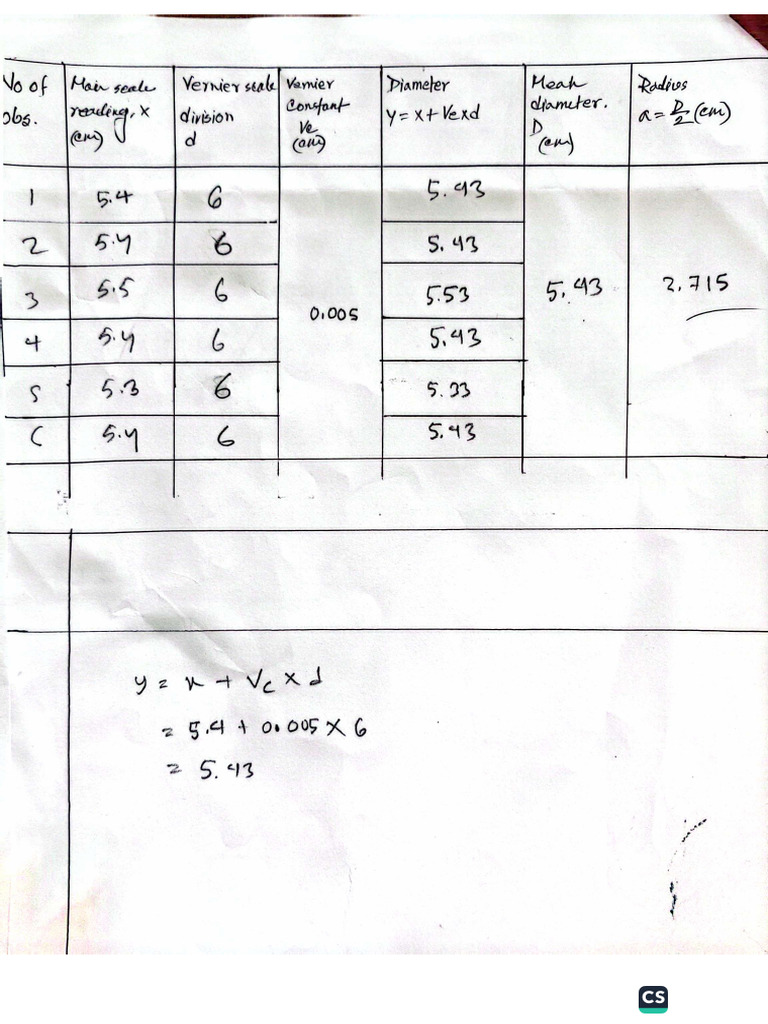 No of obs. | Main scale reading, x (cm) | Vernier scale division d | Vernier Constant Vc (cm) | Diameter y = x + Vc x d | Mean diameter. D (cm) | Radius a = D/2 (cm)
1 | 5.4 | 6 | 0.005 | 5.43 | 5.43 | 2.715
2 | 5.4 | 6 | 5.43
3 | 5.5 | 6 | 5.53
4 | 5.4 | 6 | 5.43
5 | 5.3 | 6 | 5.33
6 | 5.4 | 6 | 5.43
y = x + Vc x d
= 5.4 + 0.005 x 6
= 5.43
CS